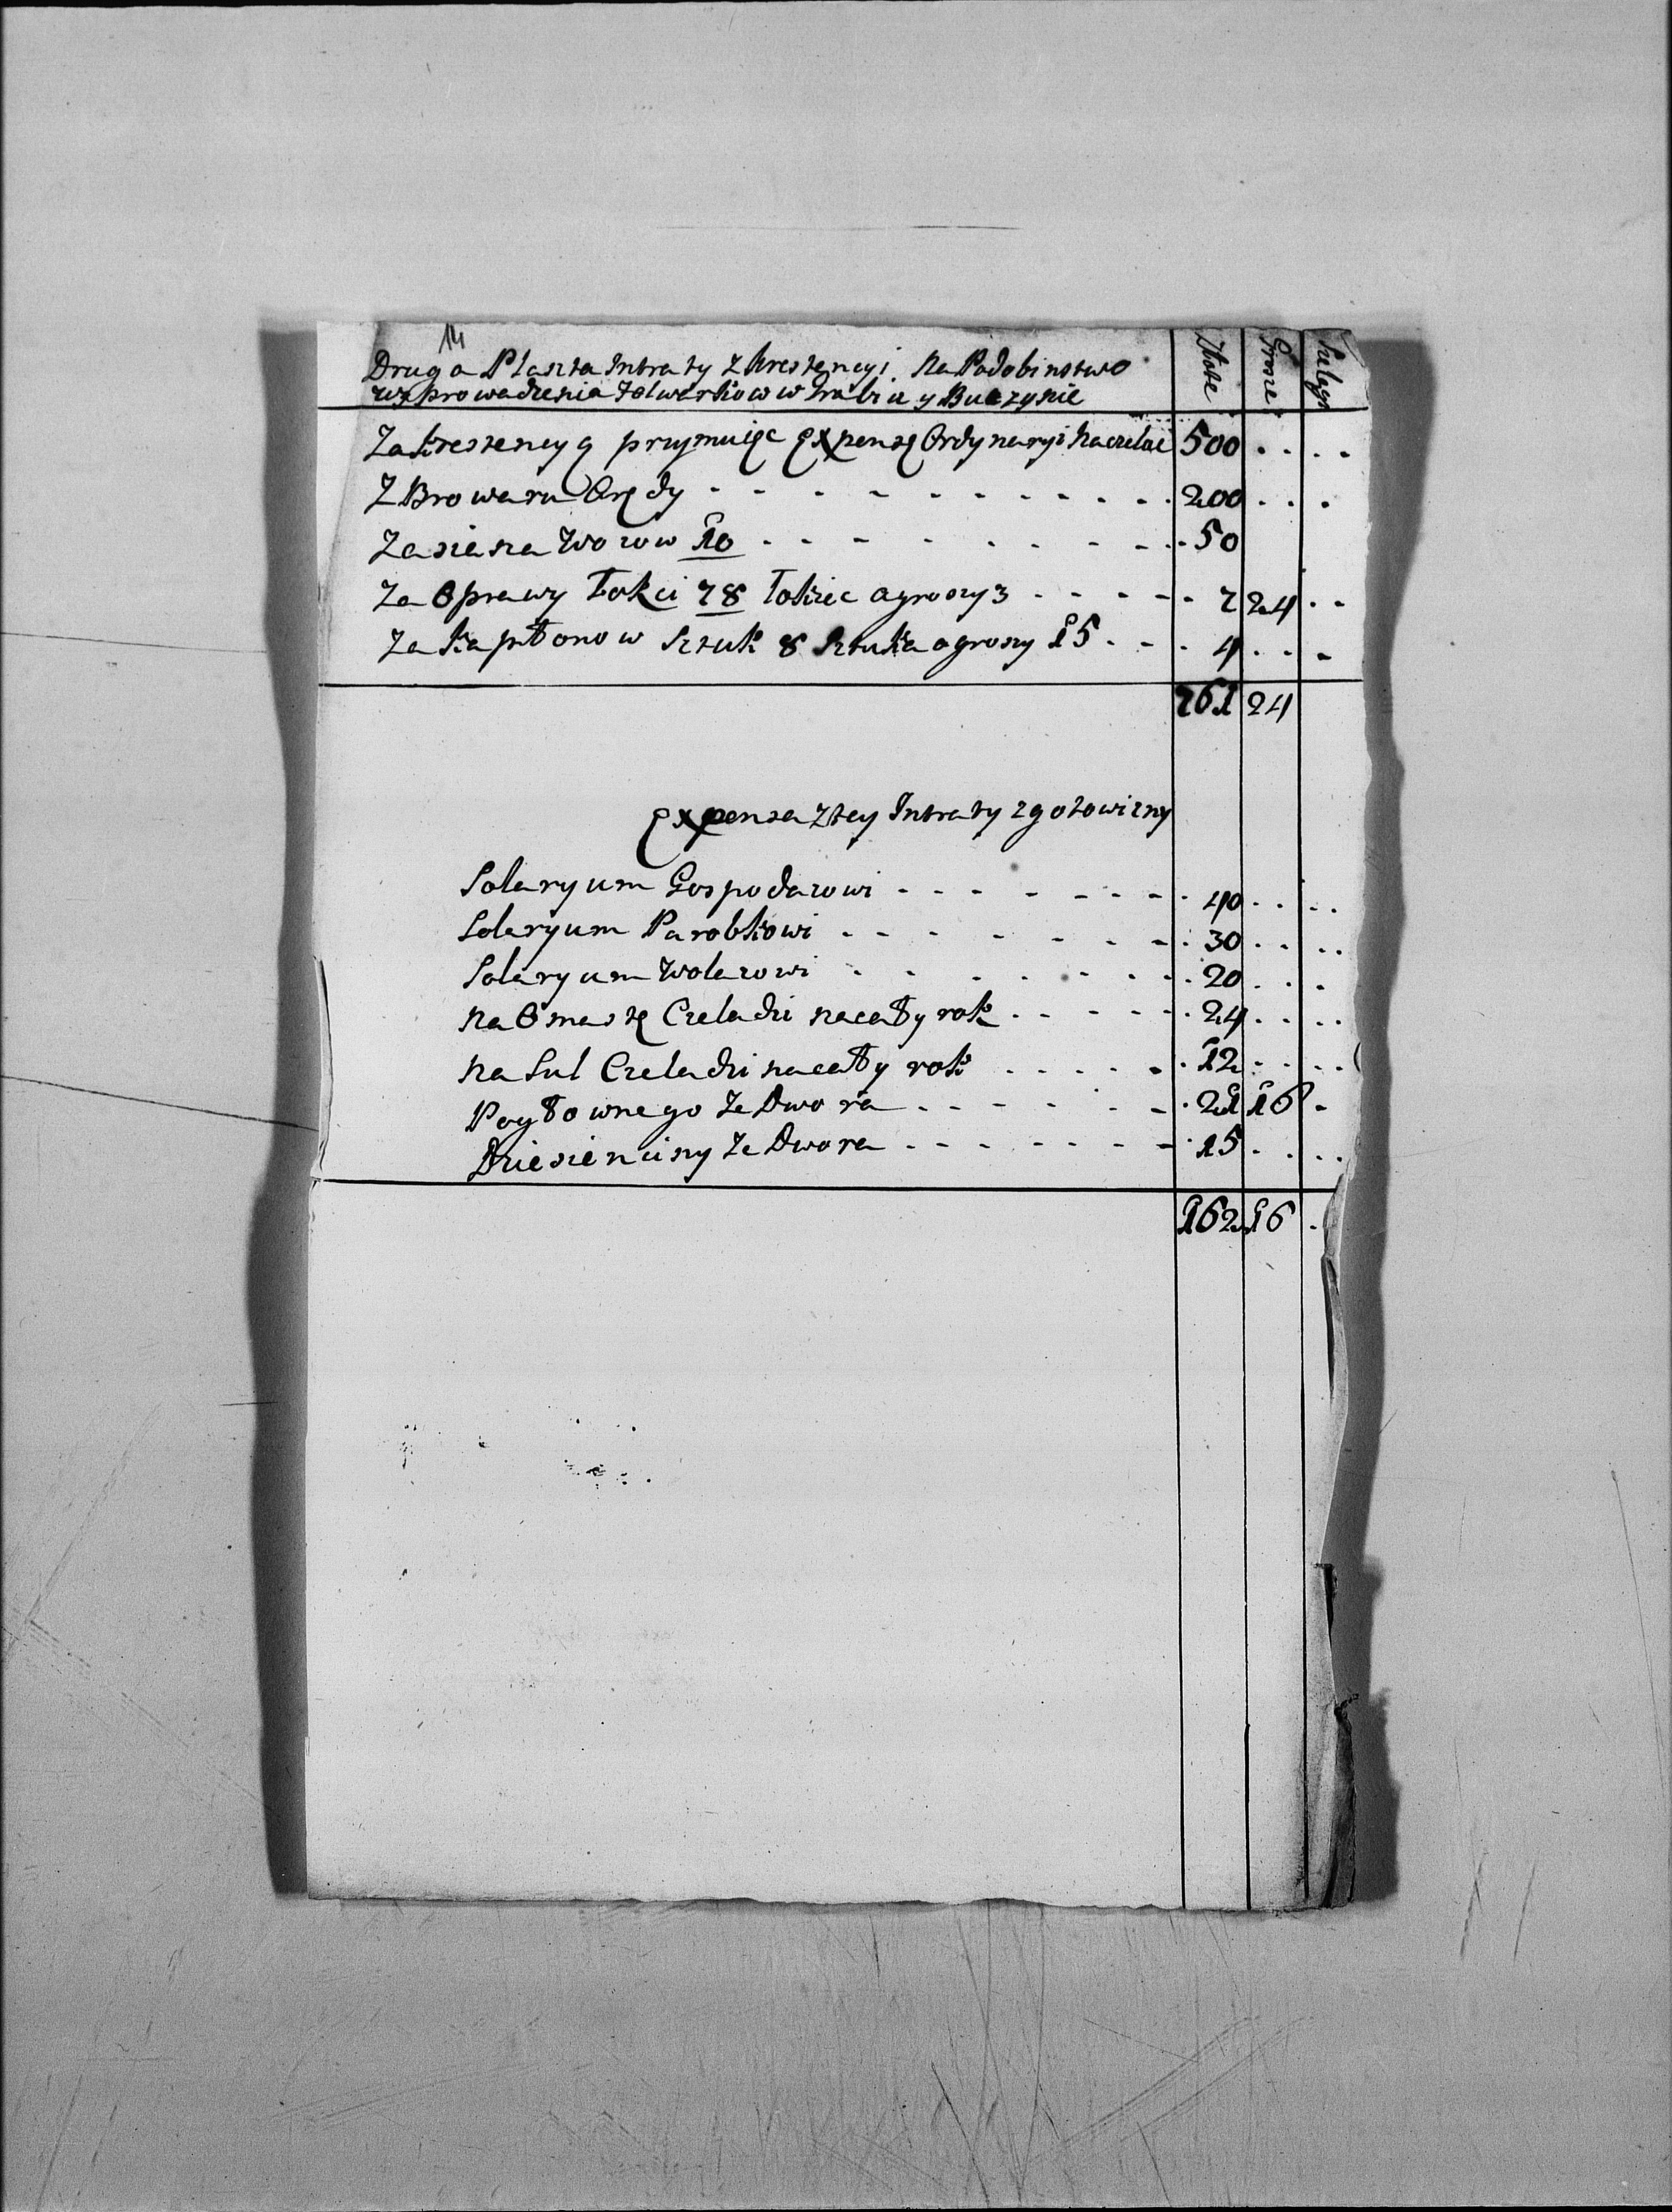 14
Druga Planta Intraty z krestencyi Na Podobinstwo Złote Grosze Szelągi
wyprowadzenia Folwarkow w Hrabiu y Buczynie
Za krestencyą przymuięc Expensę Ordynaryi na czeladz 500
Z Browaru Arędy 200
Za siana Wozow 10 50
Za Oprawy Łokci 78 Łokiec a groszy 3 7 24
Za Kapłonow sztuk 8 sztuka a groszy 15 4
761 24
Expensa z tey Intraty z gotowizny
Solaryum Gospodarowi 40
Solaryum Parobkowi 30
Solaryum Wolarowi 20
na Omastę Czeladzi na cały rok 24
na Sul Czeladzi na cały rok 12
Pogłownego ze Dwora 21 16
Dziesienciny ze Dwora 15
162 16